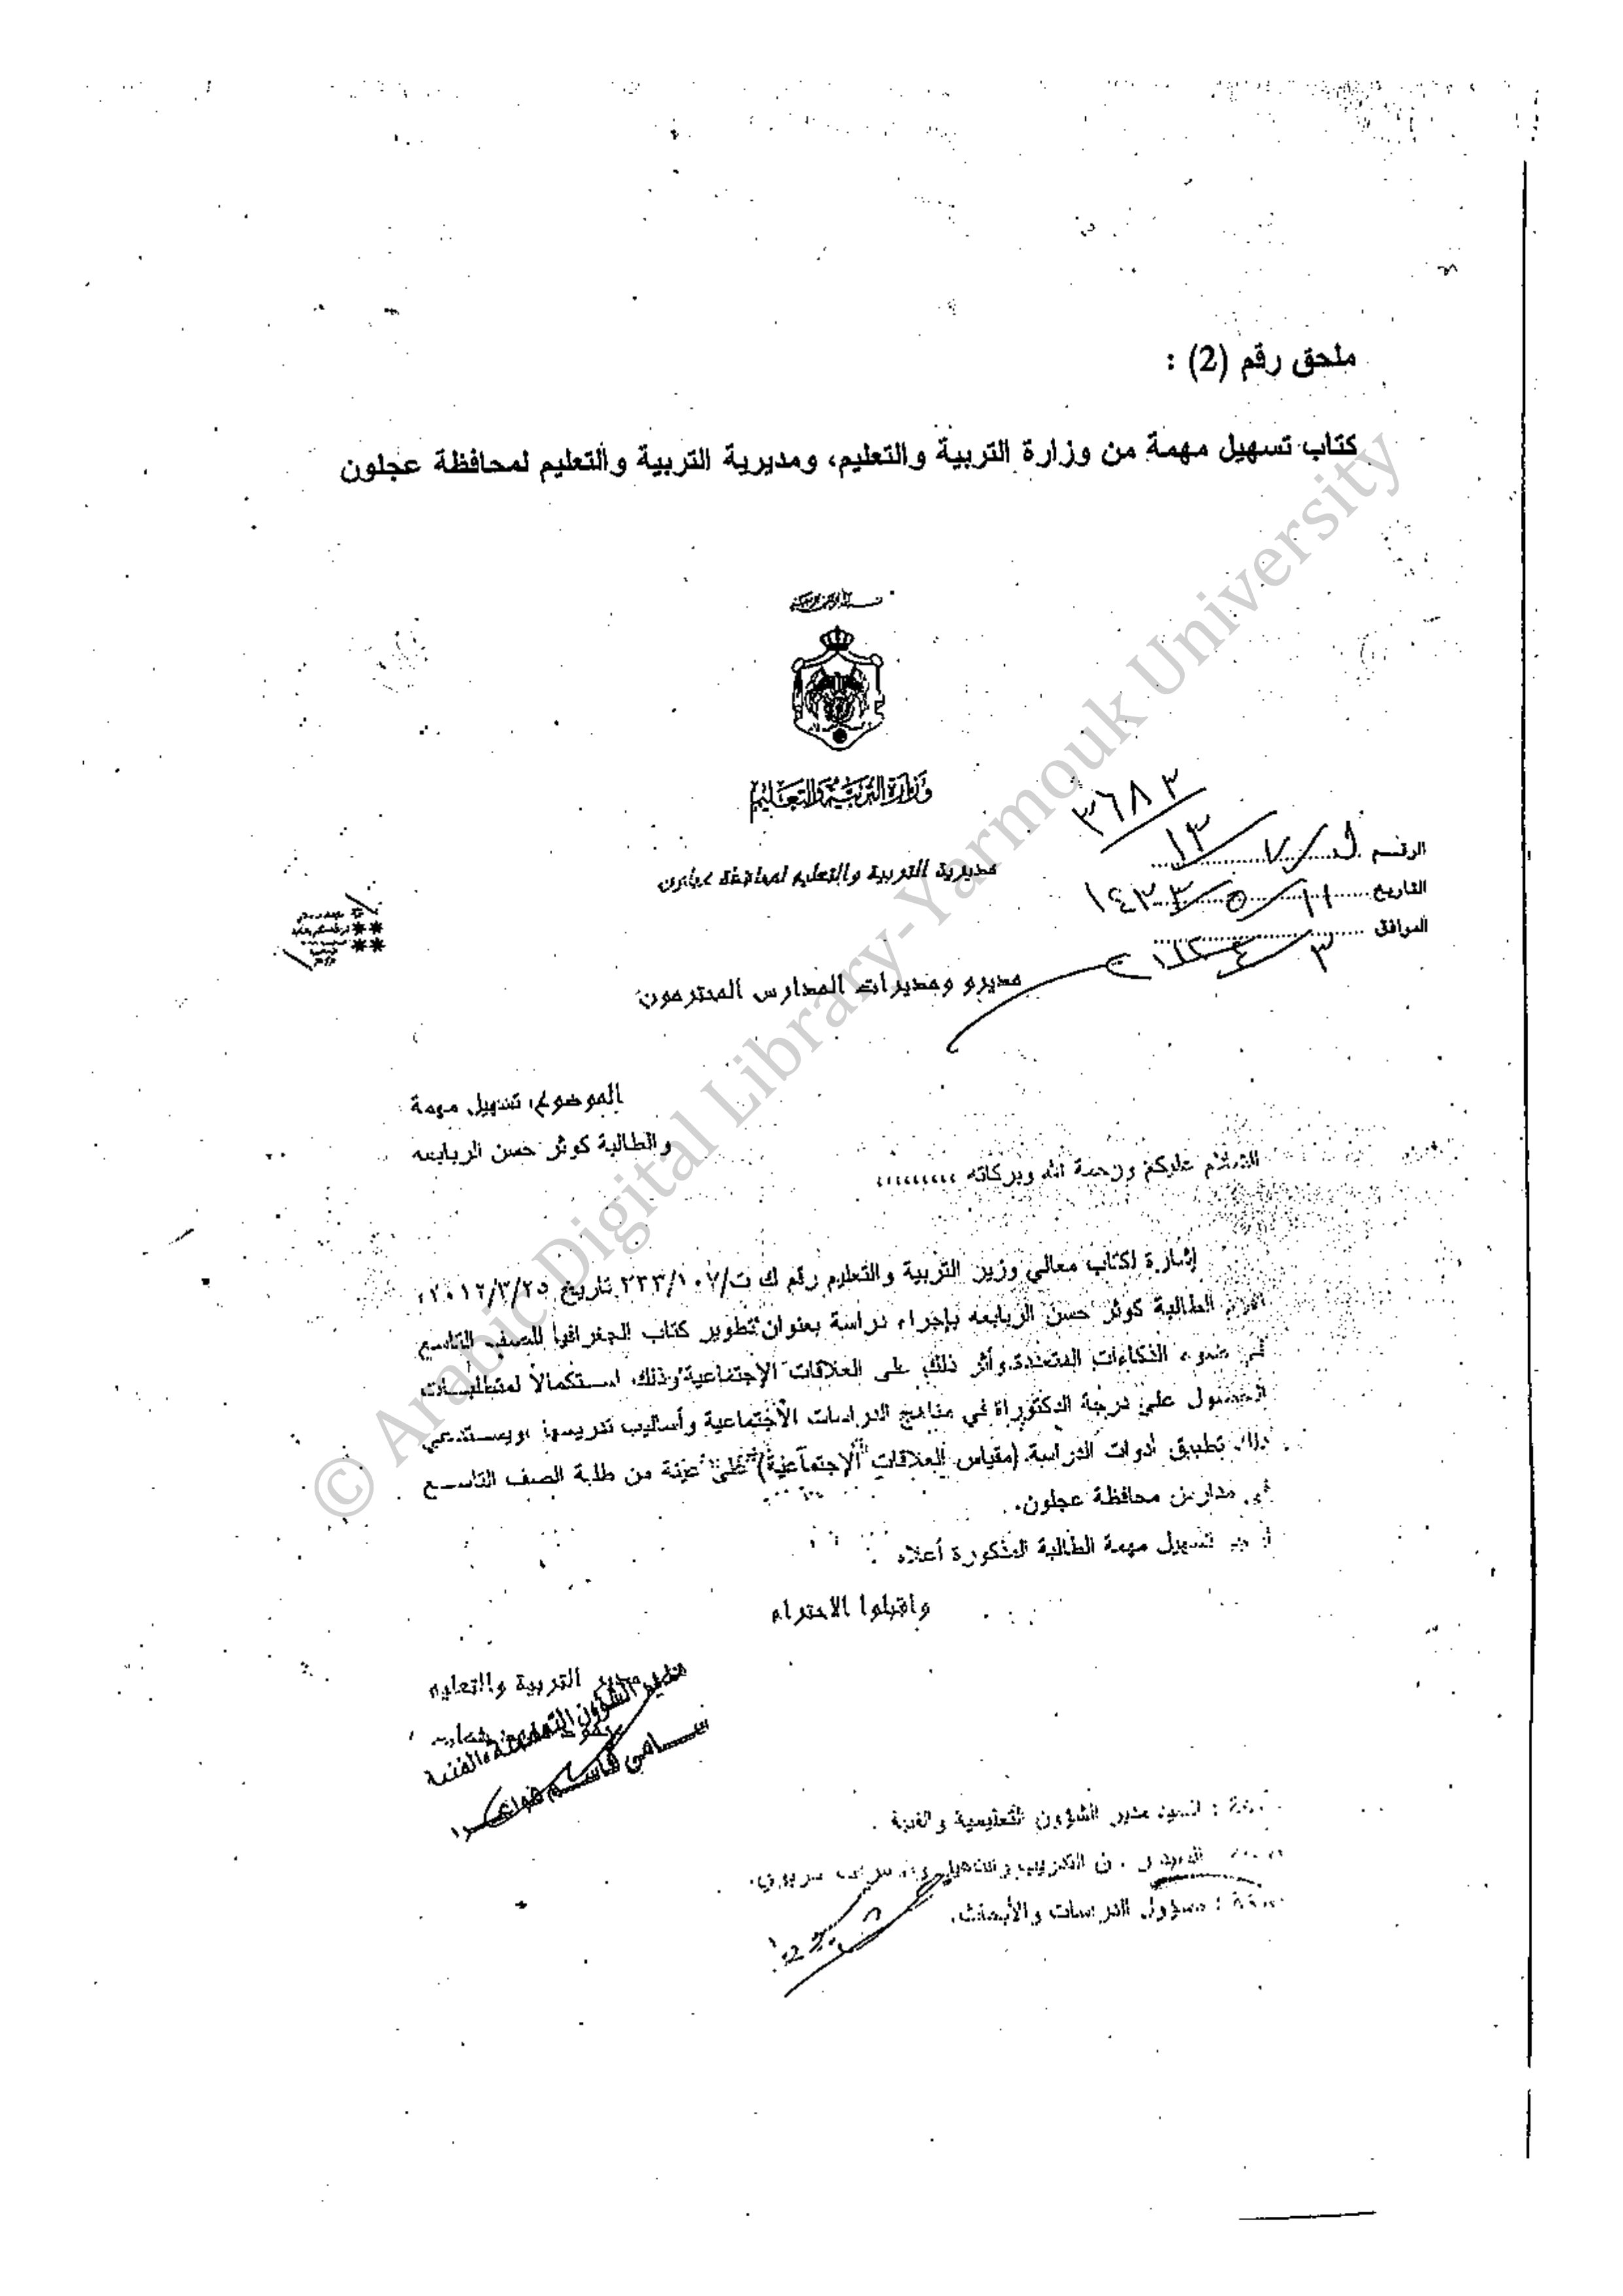 ملحق رقم (2) :
كتاب تسهيل مهمة من وزارة التربية والتعليم، ومديرية التربية والتعليم لمحافظة عجلون
وزارة التربية والتعليم
مديرية التربية والتعليم لمحافظة عجلون
٣٦٨٣
الرقم ١٣/٧
التاريخ ١١/٥/١٤٣٣
الموافق ٣/٤/٢٠١٢
مديرو ومديرات المدارس المحترمون
الموضوع: تسهيل مهمة
والطالبة كوثر حسن الربابعه
السلام عليكم ورحمة الله وبركاته ،،،،،،،،،
إشارة لكتاب معالي وزير التربية والتعليم رقم ك ت/٢٣٣/١٠٧ تاريخ ٢٠١٢/٣/٢٥،
الطالبة كوثر حسن الربابعه بإجراء دراسة بعنوان"تطوير كتاب الجغرافيا للصف التاسع
في ضوء الذكاءات المتعددة وأثر ذلك على العلاقات الإجتماعية"وذلك استكمالاً لمتطلبات
الحصول على درجة الدكتوراة في مناهج الدراسات الأجتماعية وأساليب تدريسها ،ويستدعي
ذلك تطبيق أدوات الدراسة (مقياس العلاقات الإجتماعية) على عينة من طلبة الصف التاسع
في مدارس محافظة عجلون.
تسهيل مهمة الطالبة المذكورة أعلاه
واقبلوا الاحترام
مدير التربية والتعليم
مدير الشؤون التعليمية والفنية
سامي قاسم
: السيد مدير الشؤون التعليمية والفنية .
التدريب والتأهيل
: مسؤول الدرسات والأبحاث.
© Arabic Digital Library-Yarmouk University